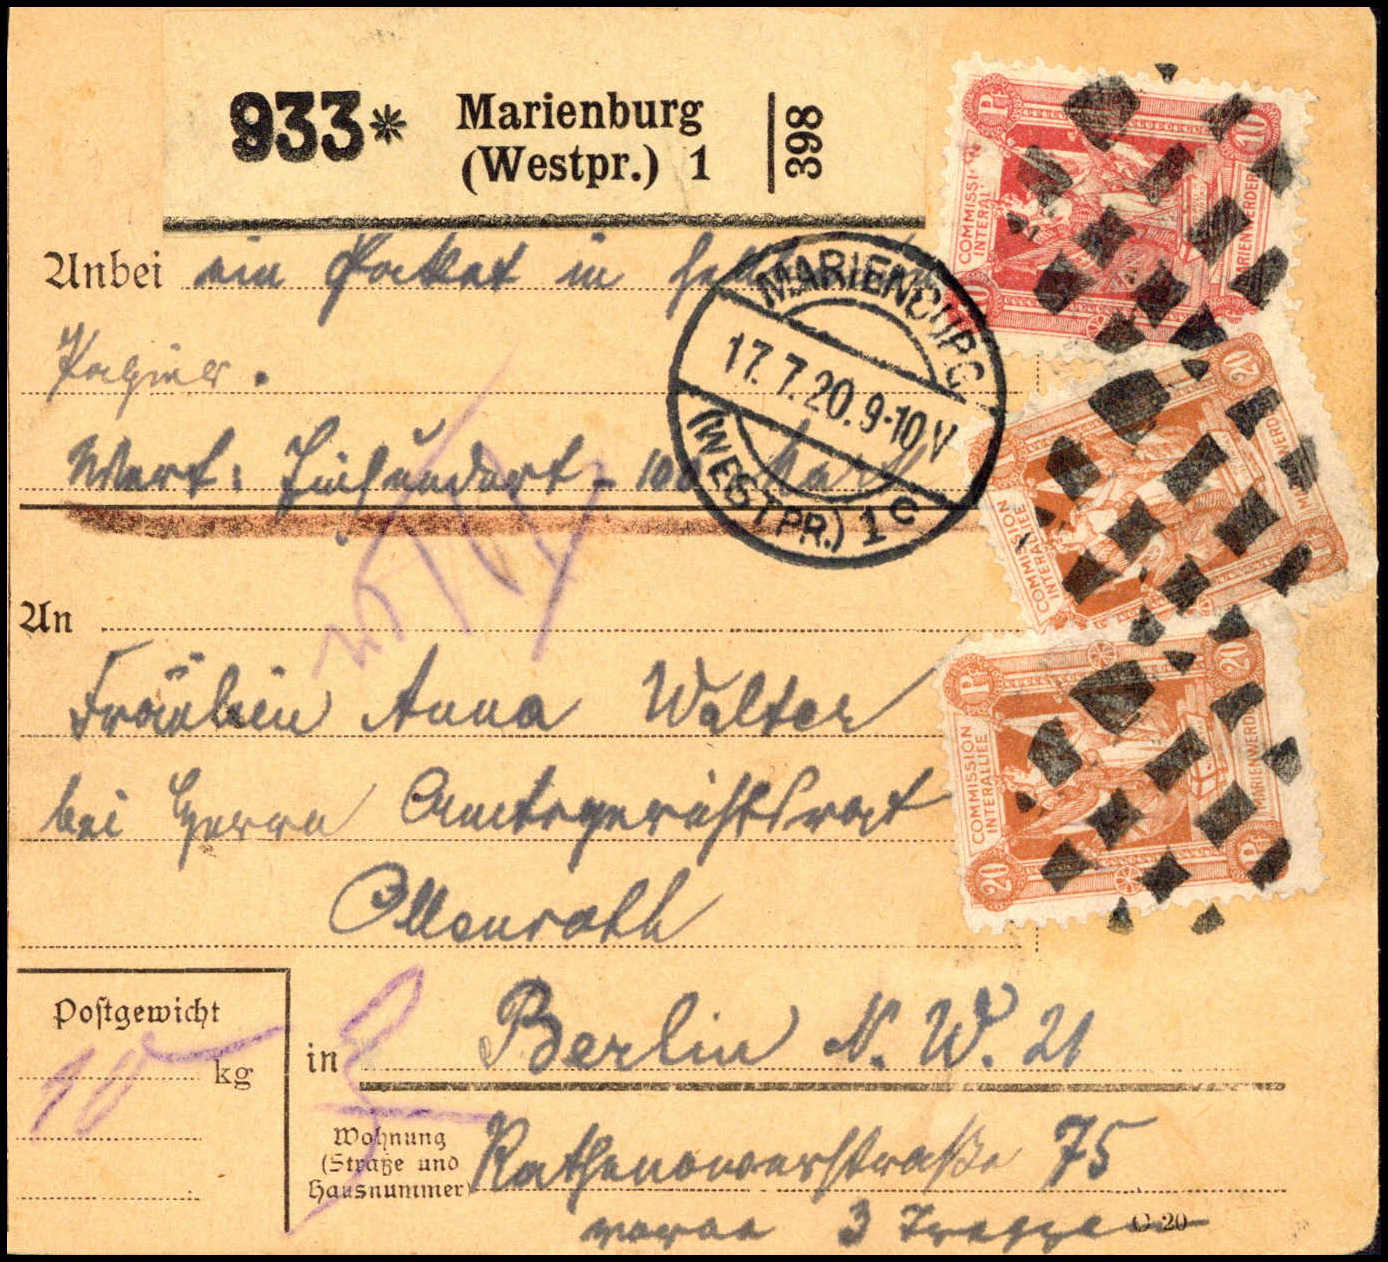 933* Marienburg
(Westpr.) 1
398
Anbei ein Packet in
Papier.
Wert: Einhundert - 100 Mark
MARIENBURG
17.7.20.9-10V
(WESTPR.) 1 c
An
Fräulein Anna Walter
bei Herrn Amtsgerichtsrat
Ollenroth
Postgewicht
10
kg
in Berlin N. W. 21
Wohnung
(Straße und
Hausnummer)
Rathenowerstraße 75
vorne 3 Treppen
C 20
Pf 40
COMMISSION
INTERALLIEE
MARIENWERDER
20
COMMISSION
INTERALLIEE
MARIENWERDER
Pf 20
COMMISSION
INTERALLIEE
MARIENWERDER
20 Pf